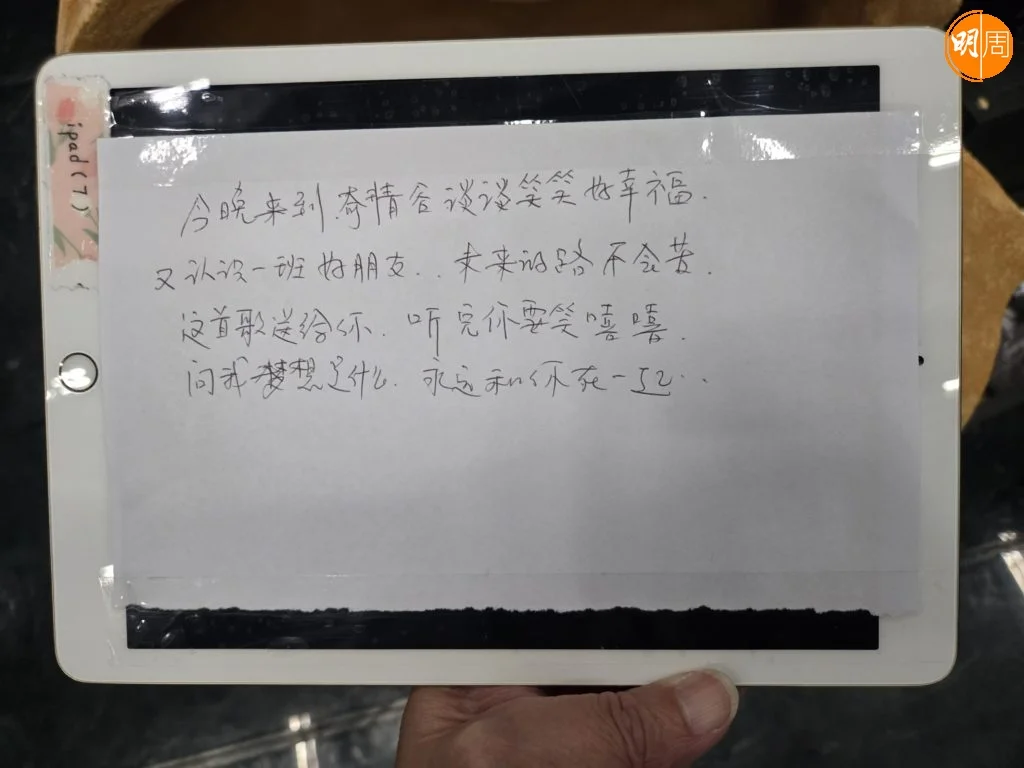 明周
ipad(7)
今晚来到奇情谷谈谈笑笑好幸福.
又认识一班好朋友..未来的路不会苦.
这首歌送给你.听完你要笑嘻嘻.
问我梦想是什么.永远和你在一起..